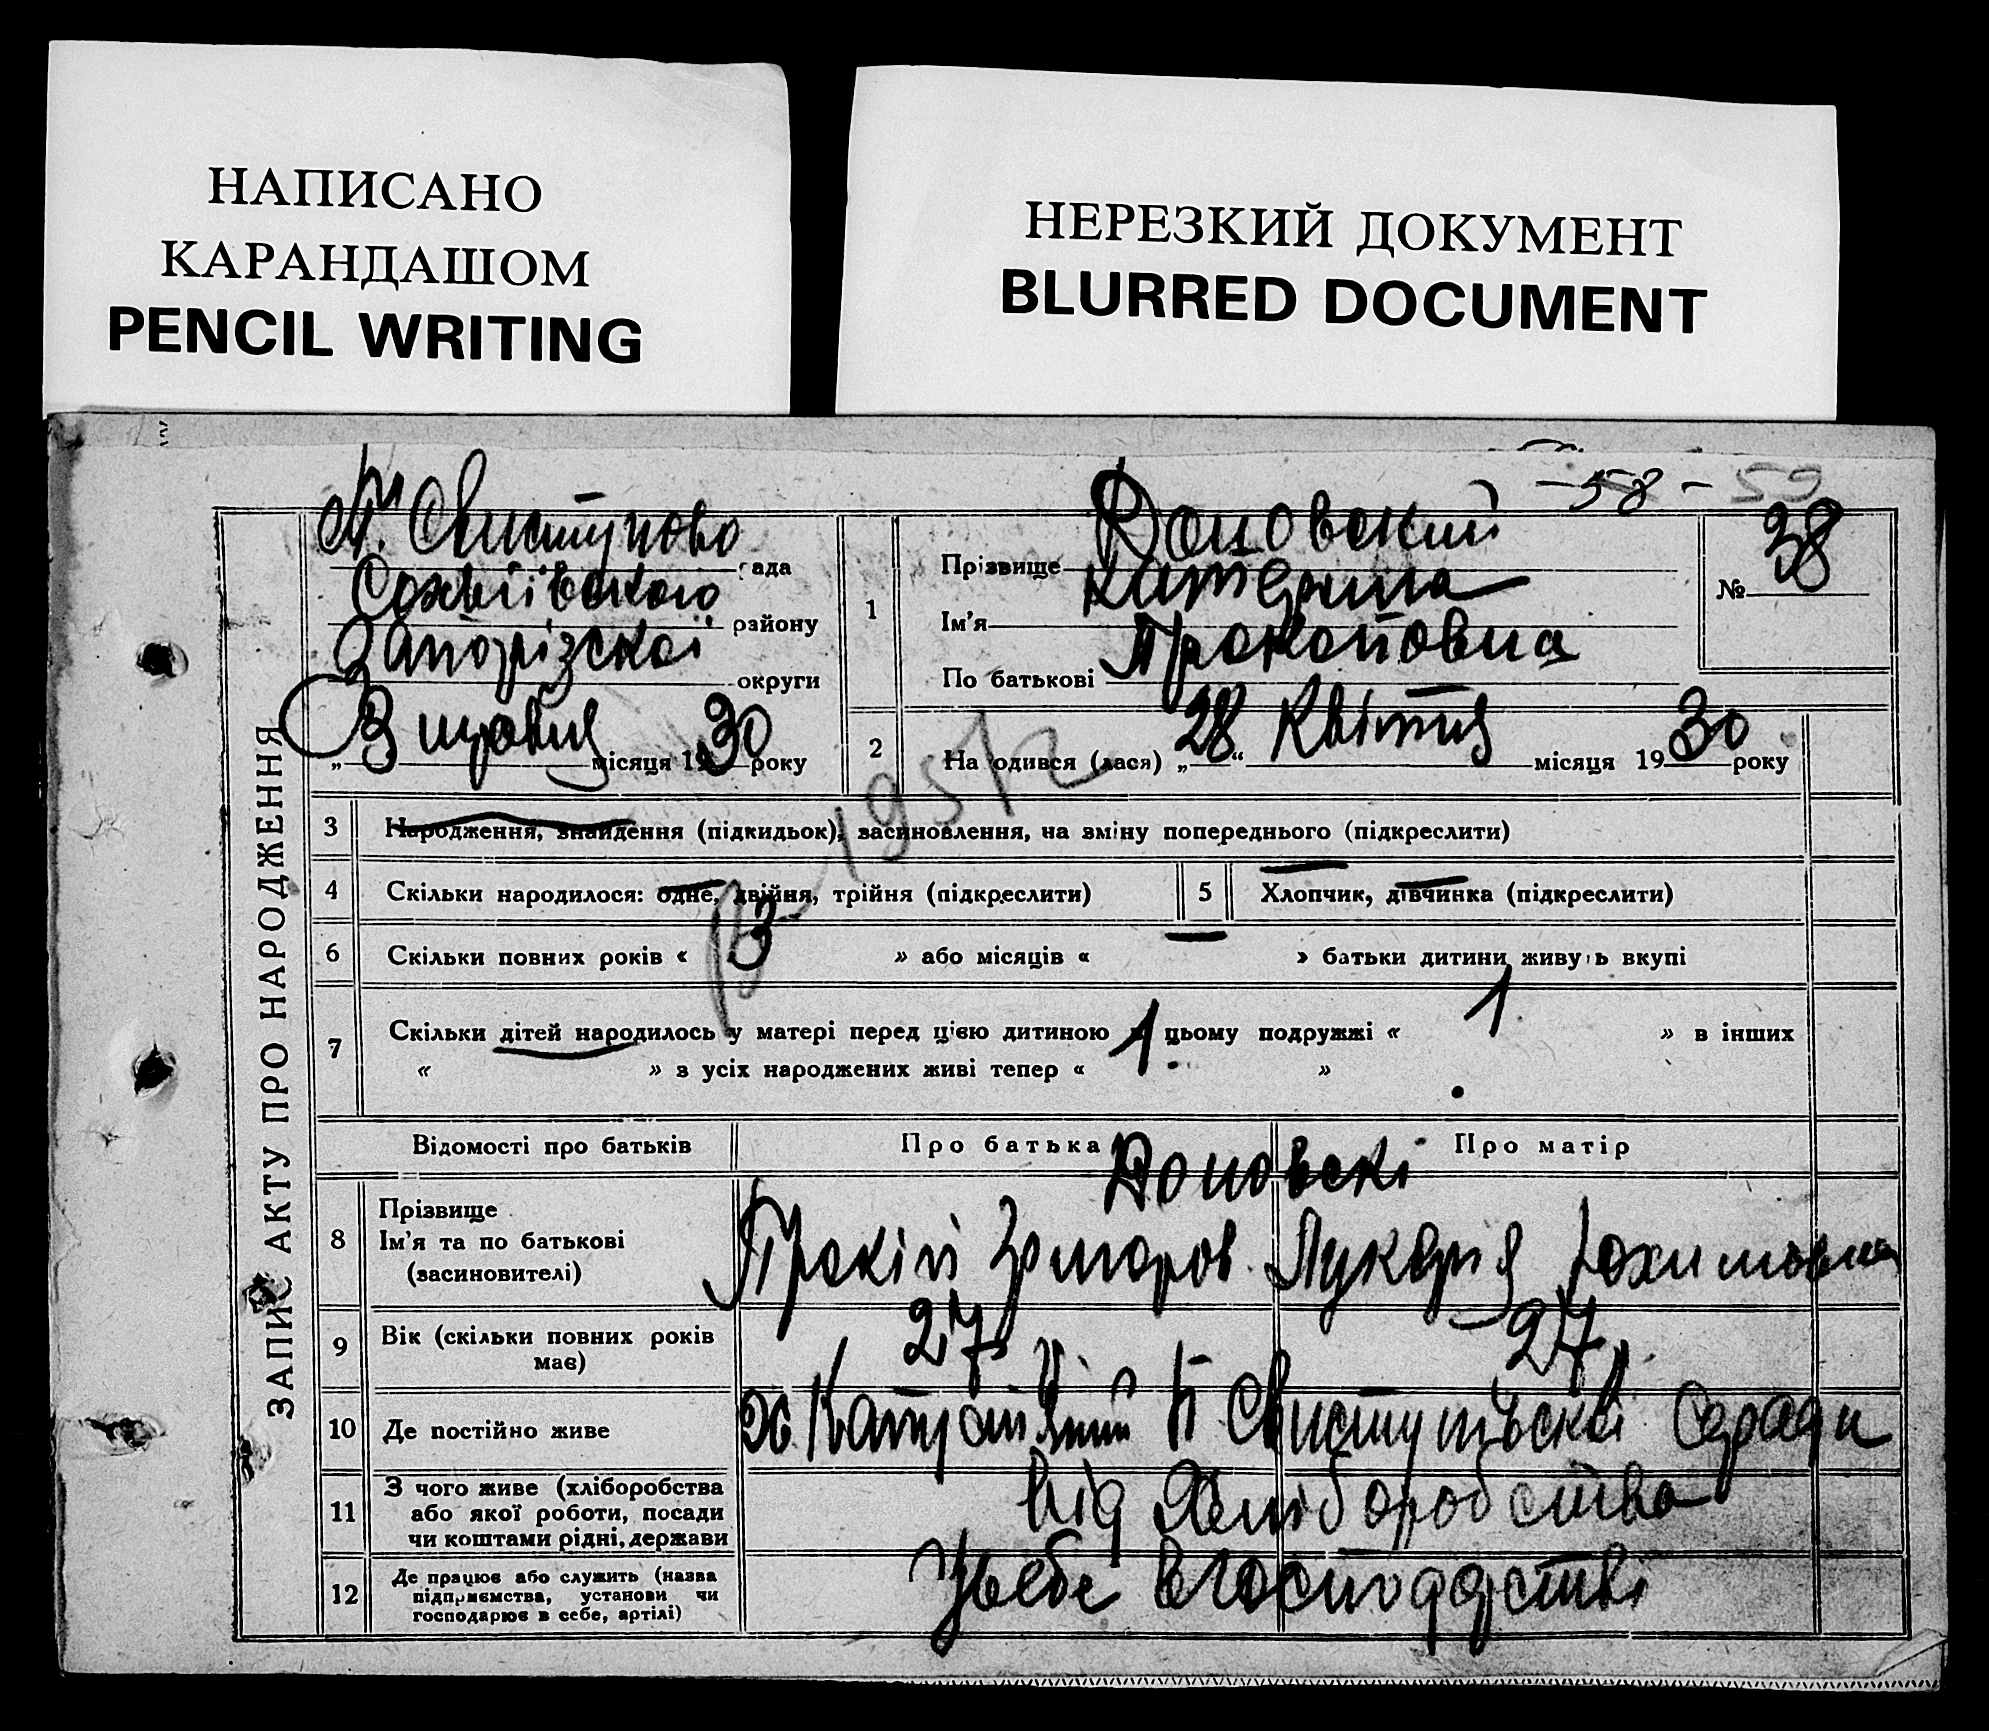 НАПИСАНО
КАРАНДАШОМ
PENCIL WRITING
НЕРЕЗКИЙ ДОКУМЕНТ
BLURRED DOCUMENT
- 58 - 59
ЗАПИС АКТУ ПРО НАРОДЖЕННЯ
Свистуново рада
району
Запорізской округи
„ 3 травня місяця 19 30 року
1 Прізвище
Ім'я Катерина
По батькові Прокоповна
№ 38
2 Народився (лася) „ 28 “ Квітня місяця 19 30 року
1951
3 Народження, знайдення (підкидьок), засиновлення, на зміну попереднього (підкреслити)
4 Скільки народилося: одне, двійня, трійня (підкреслити)
5 Хлопчик, дівчинка (підкреслити)
6 Скільки повних років « 3 » або місяців « — » батьки дитини живуть вкупі
7 Скільки дітей народилось у матері перед цією дитиною в цьому подружжі « 1 » в інших
« » з усіх народжених живі тепер « 1 »
Відомості про батьків Про батька Про матір
8 Прізвище
Ім'я та по батькові
(засиновителі)
Прокіп Григоров. Лукерія
9 Вік (скільки повних років
має)
27 27
10 Де постійно живе
Свистунівскі Сіради
11 З чого живе (хліборобства
або якої роботи, посади
чи коштами рідні, держави
від Хліборобства
12 Де працює або служить (назва
підприємства, установи чи
господарює в себе, артілі)
Усебе в господарстві